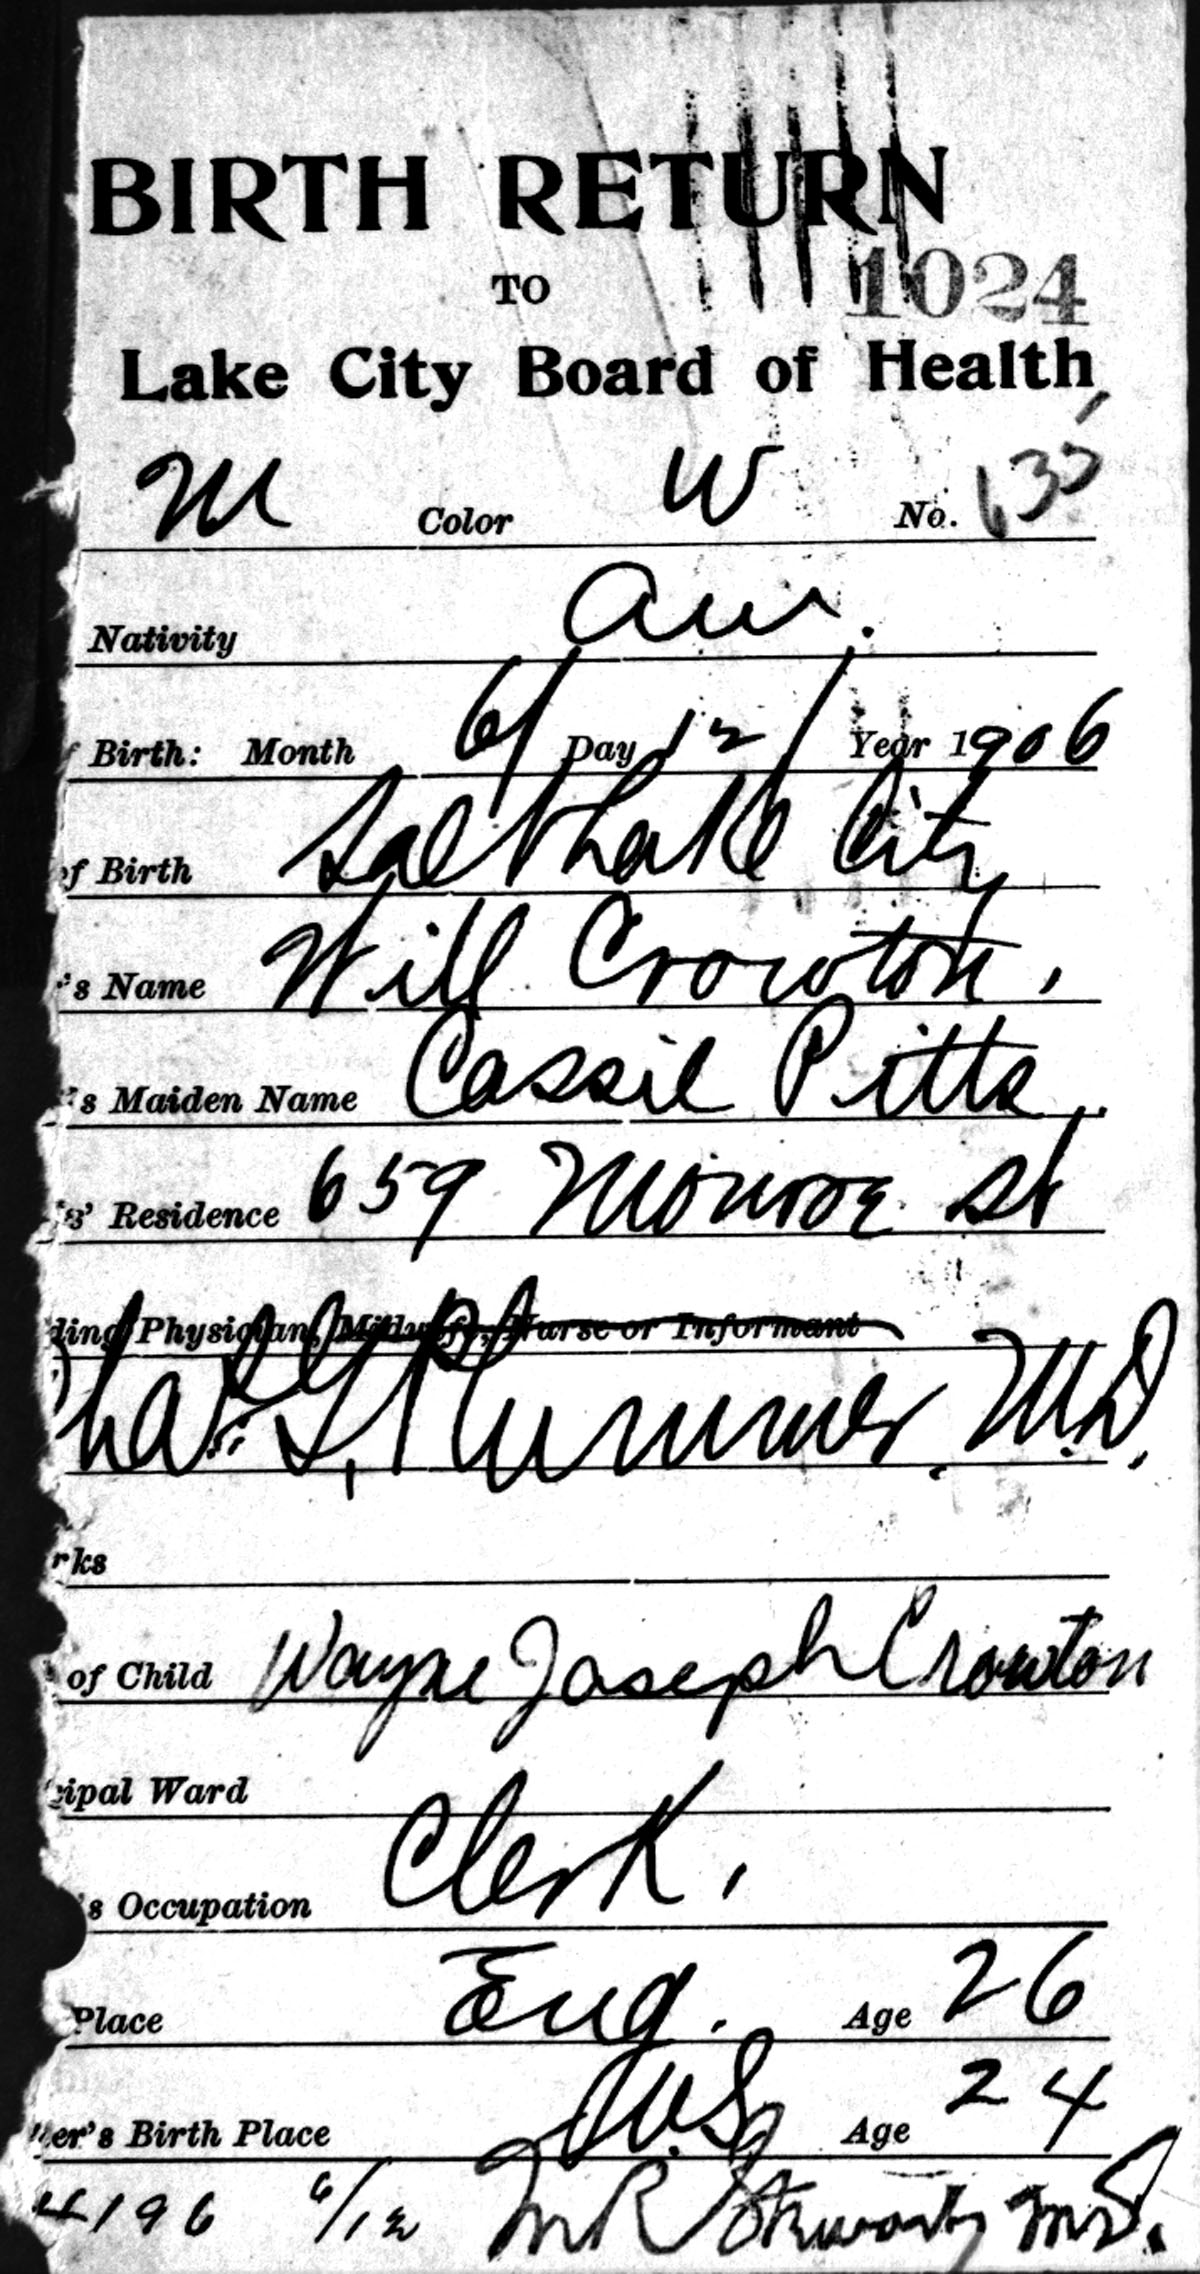 BIRTH RETURN
TO
1024
Lake City Board of Health,
M Color W No. 135
Nativity Am.
f Birth: Month 6/ Day 12/ Year 1906
of Birth Salt Lake City
's Name Will Crowton.
's Maiden Name Cassie Pitts.
s' Residence 659 Monroe St
ding Physician, Midwife, Nurse or Informant
Chas. G. Plummer, M.D.
rks
of Child Wayne Joseph Crowton
cipal Ward
's Occupation Clerk.
Place Eng. Age 26
er's Birth Place U.S. Age 24
4196 6/12 M R Stewart, M.D.